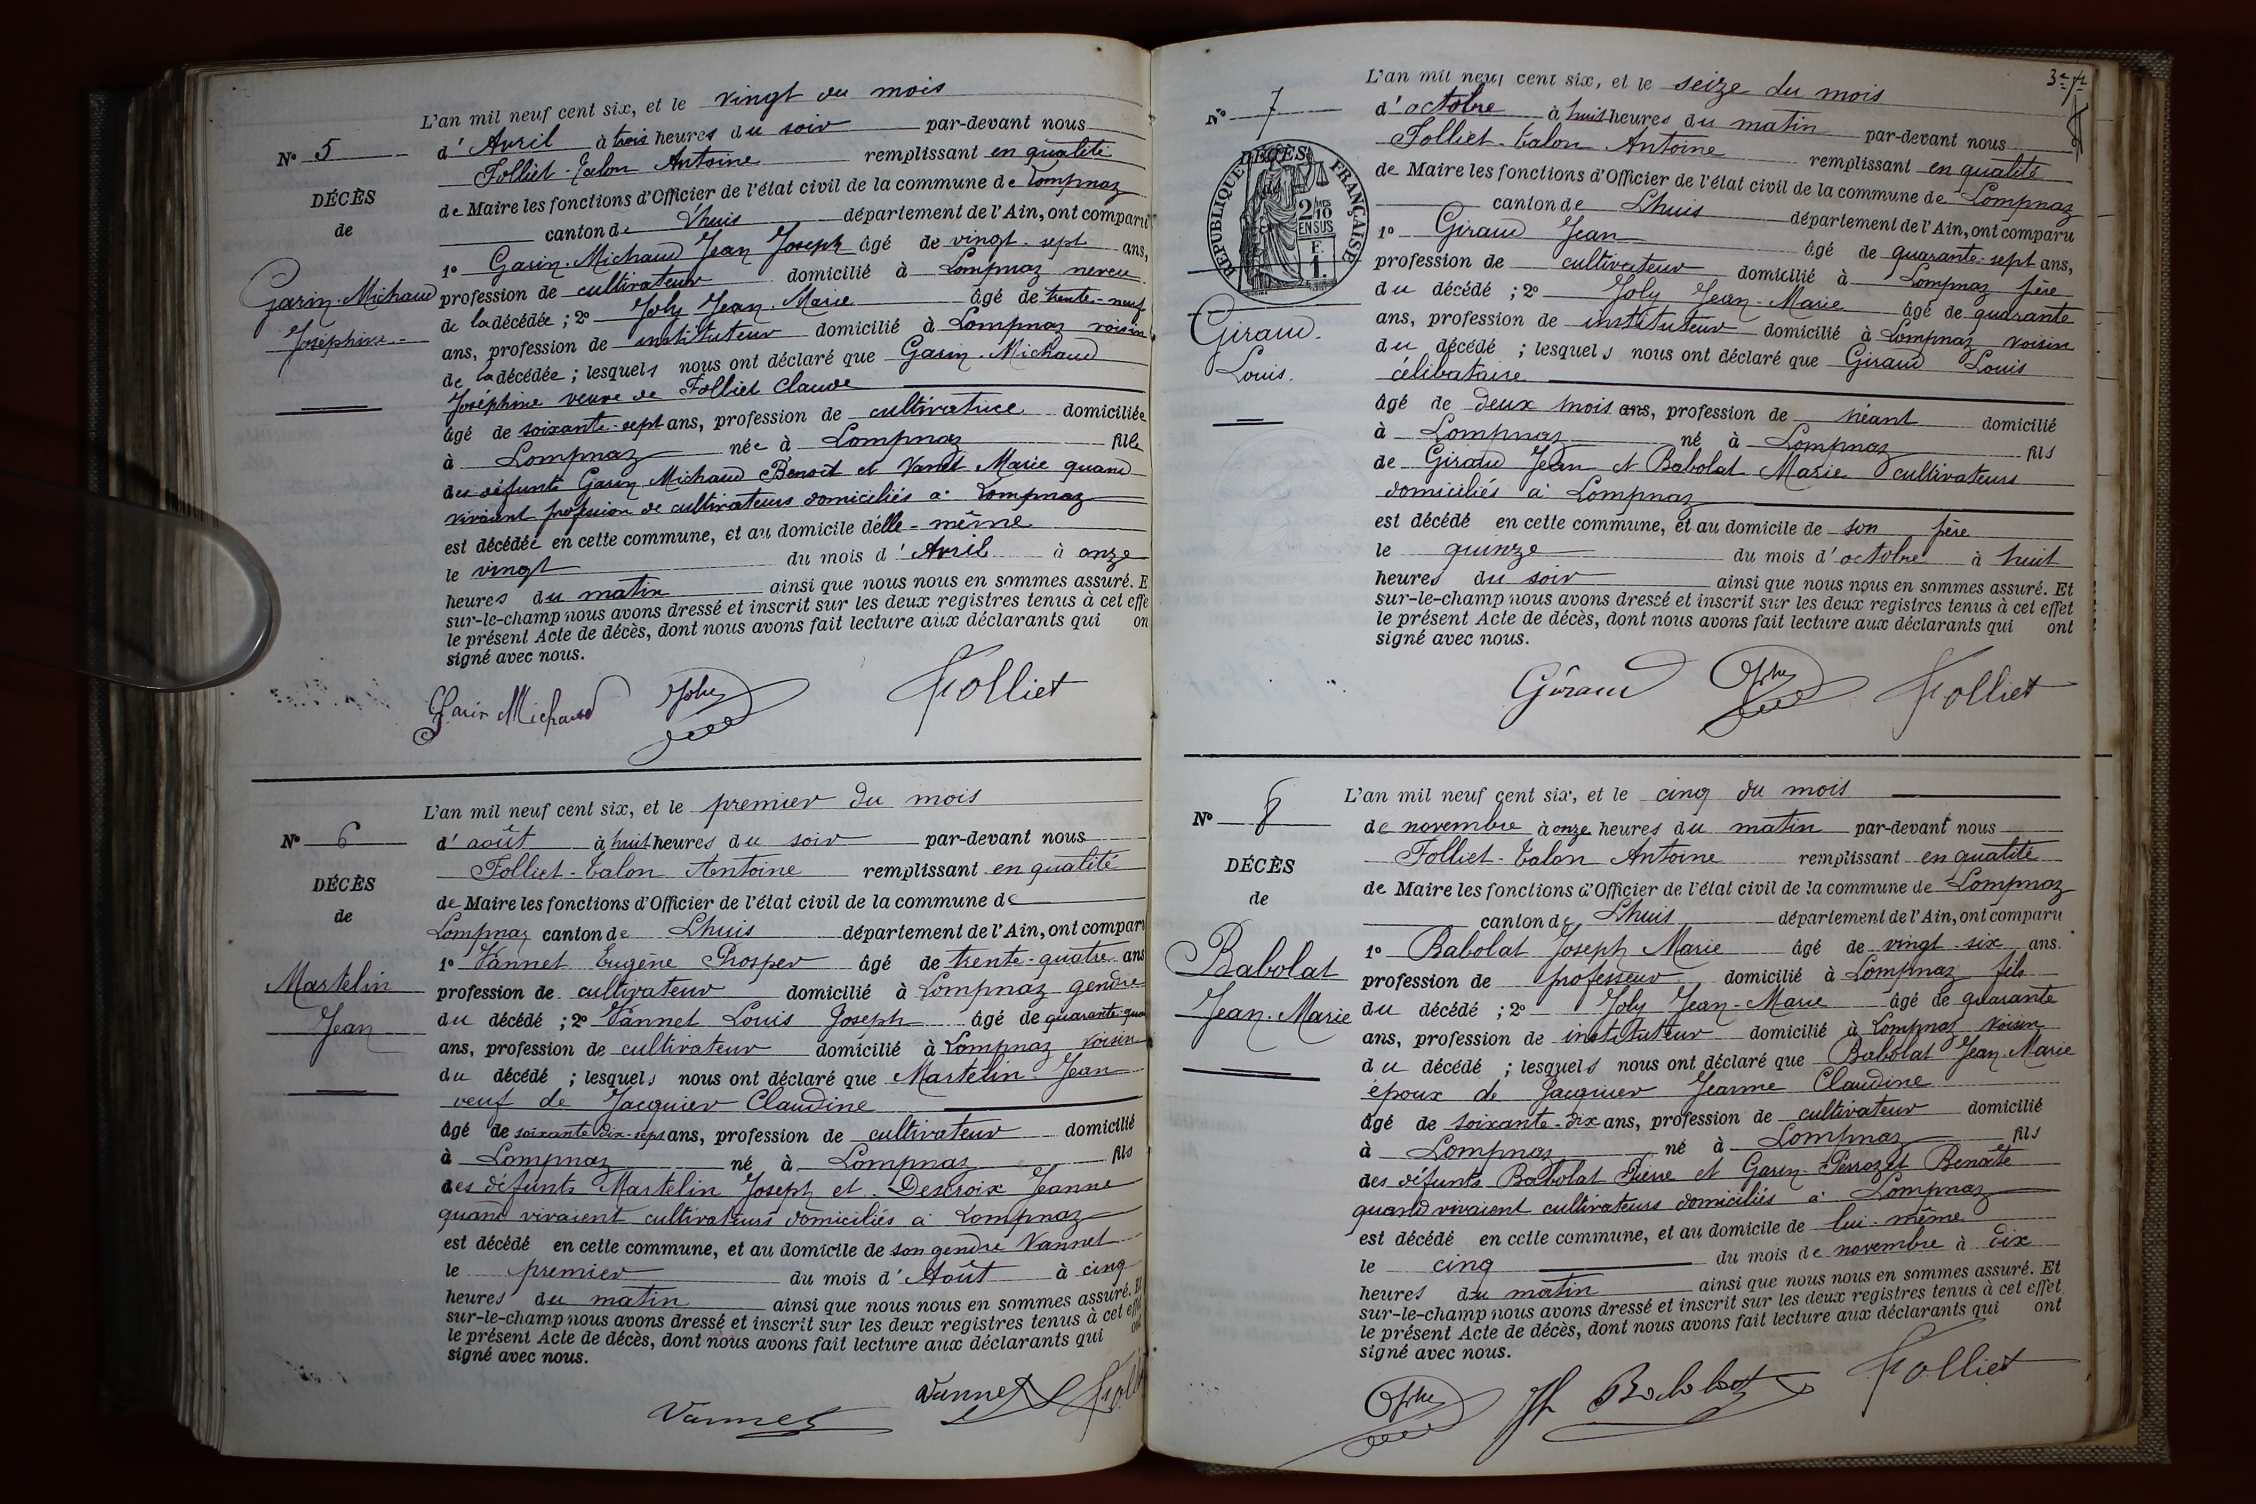 L'an mil neuf cent six, et le vingt du mois
N° 5 d'Avril à trois heures du soir par-devant nous
Folliet-Talon Antoine remplissant en qualité
DÉCÈS
de Maire les fonctions d'Officier de l'état civil de la commune de Lompnaz
de
canton de Lhuis département de l'Ain, ont comparu
1° Garin-Michaud Jean Joseph âgé de vingt-sept ans,
Garin-Michaud
profession de cultivateur domicilié à Lompnaz neveu
Joséphine
de la décédée ; 2° Joly Jean-Marie âgé de trente-neuf
ans, profession de instituteur domicilié à Lompnaz voisin
de la décédée ; lesquels nous ont déclaré que Garin-Michaud
Joséphine veuve de Folliet Claude
âgé de soixante-sept ans, profession de cultivatrice domiciliée
à Lompnaz née à Lompnaz fille
des défunts Garin Michaud Benoit et Vanet Marie quand
vivaient profession de cultivateurs domiciliés à Lompnaz
est décédée en cette commune, et au domicile d'elle-même
le vingt du mois d'Avril à onze
heures du matin ainsi que nous nous en sommes assuré. E
sur-le-champ nous avons dressé et inscrit sur les deux registres tenus à cet effe
le présent Acte de décès, dont nous avons fait lecture aux déclarants qui on
signé avec nous.
Garin Michaud Joly Folliet
L'an mil neuf cent six, et le premier du mois
N° 6 d'août à huit heures du soir par-devant nous
Folliet-Talon Antoine remplissant en qualité
DÉCÈS
de Maire les fonctions d'Officier de l'état civil de la commune de
de
Lompnaz canton de Lhuis département de l'Ain, ont comparu
1° Vannet Eugène Prosper âgé de trente-quatre ans
Martelin
profession de cultivateur domicilié à Lompnaz gendre
Jean
du décédé ; 2° Vannet Louis Joseph âgé de quarante-qua
ans, profession de cultivateur domicilié à Lompnaz voisin
du décédé ; lesquels nous ont déclaré que Martelin Jean
veuf de Jacquier Claudine
âgé de soixante-dix-sept ans, profession de cultivateur domicilié
à Lompnaz né à Lompnaz fils
des défunts Martelin Joseph et Descroix Jeanne
quand vivaient cultivateurs domiciliés à Lompnaz
est décédé en cette commune, et au domicile de son gendre Vannet
le premier du mois d'Août à cinq
heures du matin ainsi que nous nous en sommes assuré. Et
sur-le-champ nous avons dressé et inscrit sur les deux registres tenus à cet effe
le présent Acte de décès, dont nous avons fait lecture aux déclarants qui on
signé avec nous.
Vannet Vannet Foll
L'an mil neuf cent six, et le seize du mois
N° 7 d'octobre à huit heures du matin par-devant nous
Folliet-Talon Antoine remplissant en qualité
DÉCÈS
RÉPUBLIQUE FRANÇAISE
2/10 EN SUS
F. 1.
de Maire les fonctions d'Officier de l'état civil de la commune de Lompnaz
canton de Lhuis département de l'Ain, ont comparu
1° Giraud Jean âgé de quarante-sept ans,
profession de cultivateur domicilié à Lompnaz père
du décédé ; 2° Joly Jean-Marie âgé de quarante
Giraud
ans, profession de instituteur domicilié à Lompnaz voisin
Louis.
du décédé ; lesquels nous ont déclaré que Giraud Louis
célibataire
âgé de deux mois ans, profession de néant domicilié
à Lompnaz né à Lompnaz fils
de Giraud Jean et Babolat Marie cultivateurs
domiciliés à Lompnaz
est décédé en cette commune, et au domicile de son père
le quinze du mois d'octobre à huit
heures du soir ainsi que nous nous en sommes assuré. Et
sur-le-champ nous avons dressé et inscrit sur les deux registres tenus à cet effet
le présent Acte de décès, dont nous avons fait lecture aux déclarants qui ont
signé avec nous.
Giraud Joly Folliet
L'an mil neuf cent six, et le cinq du mois
N° 8 de novembre à onze heures du matin par-devant nous
Folliet-Talon Antoine remplissant en qualité
DÉCÈS
de Maire les fonctions d'Officier de l'état civil de la commune de Lompnaz
de
canton de Lhuis département de l'Ain, ont comparu
1° Babolat Joseph Marie âgé de vingt-six ans.
Babolat
profession de professeur domicilié à Lompnaz fils
Jean-Marie
du décédé ; 2° Joly Jean-Marie âgé de quarante
ans, profession de instituteur domicilié à Lompnaz voisin
du décédé ; lesquels nous ont déclaré que Babolat Jean-Marie
époux de Jacquier Jeanne Claudine
âgé de soixante-dix ans, profession de cultivateur domicilié
à Lompnaz né à Lompnaz fils
des défunts Babolat Pierre et Garin-Perrozet Benoîte
quand vivaient cultivateurs domiciliés à Lompnaz
est décédé en cette commune, et au domicile de lui-même
le cinq du mois de novembre à dix
heures du matin ainsi que nous nous en sommes assuré. Et
sur-le-champ nous avons dressé et inscrit sur les deux registres tenus à cet effet
le présent Acte de décès, dont nous avons fait lecture aux déclarants qui ont
signé avec nous.
Joly Jh Babolat Folliet